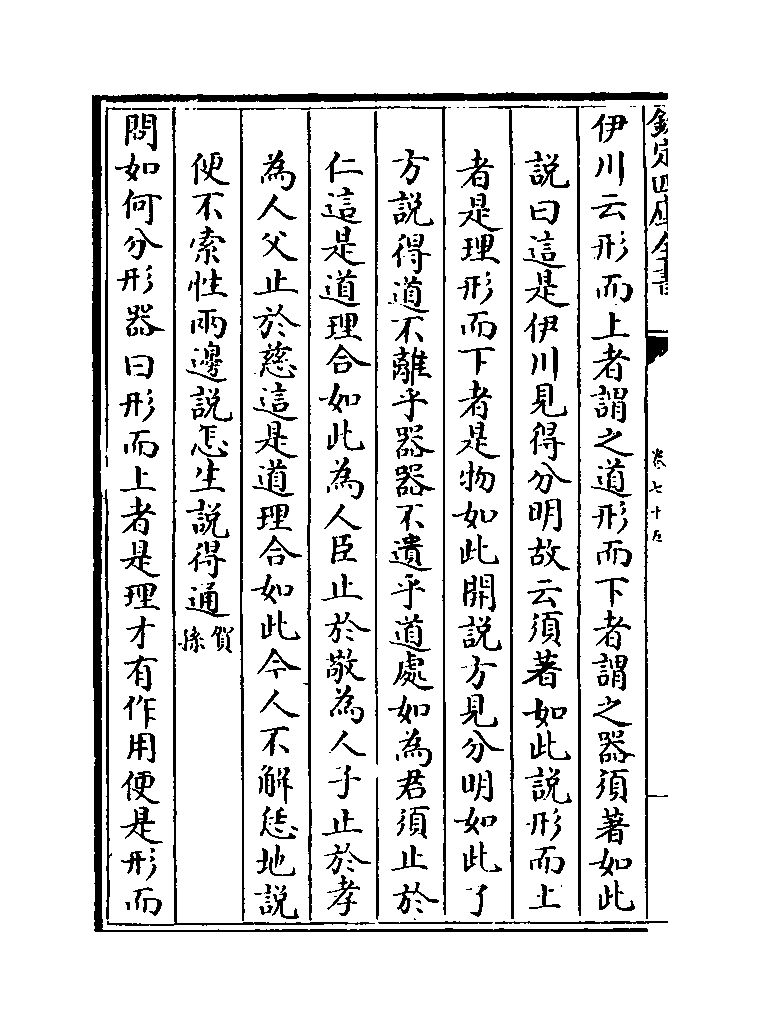 欽定四庫全書
卷七十五
伊川云形而上者謂之道形而下者謂之器須著如此
說曰這是伊川見得分明故云須著如此說形而上
者是理形而下者是物如此開說方見分明如此了
方說得道不離乎器器不遺乎道處如為君須止於
仁這是道理合如此為人臣止於敬為人子止於孝
為人父止於慈這是道理合如此今人不解恁地說
便不索性兩邊說怎生說得通賀孫
問如何分形器曰形而上者是理才有作用便是形而